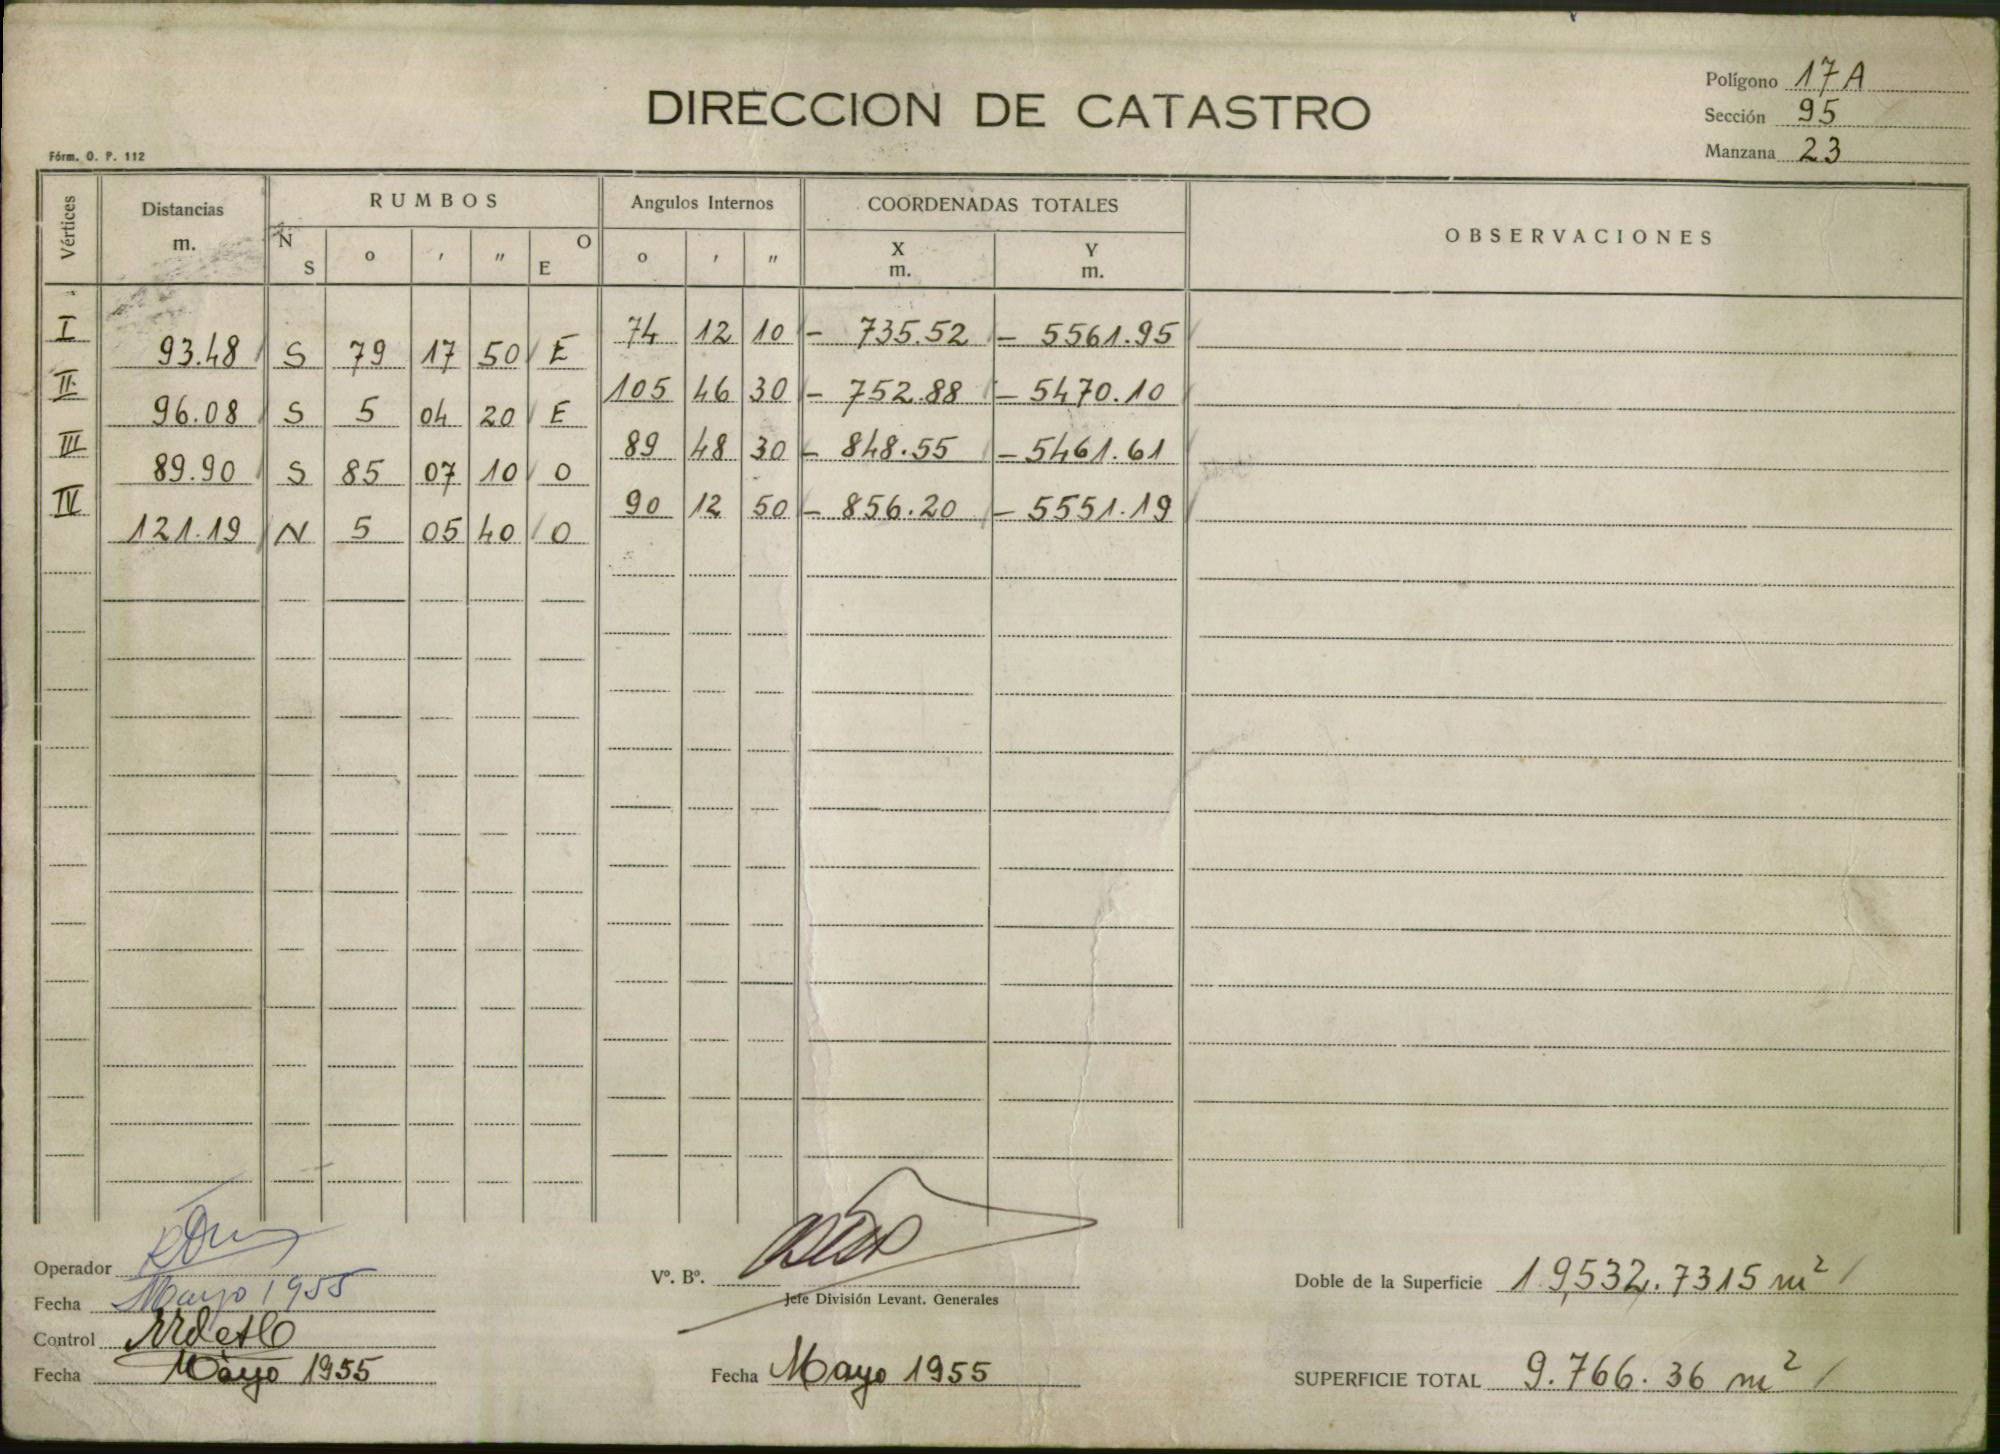 Polígono 17A
DIRECCION DE CATASTRO
Sección 95
Manzana 23
Fórm. O. P. 112
Vértices Distancias m. RUMBOS Angulos Internos COORDENADAS TOTALES OBSERVACIONES
N S o ' " O E o ' " X m. Y m.
I 74 12 10 - 735.52 - 5561.95
93.48 S 79 17 50 E
II 105 46 30 - 752.88 - 5470.10
96.08 S 5 04 20 E
III 89 48 30 - 848.55 - 5461.61
89.90 S 85 07 10 O
IV 90 12 50 - 856.20 - 5551.19
121.19 N 5 05 40 O
Operador
Fecha Mayo 1955
Control
Fecha Mayo 1955
Vº. Bº.
Jefe División Levant. Generales
Fecha Mayo 1955
Doble de la Superficie 19,532.7315 m²
SUPERFICIE TOTAL 9.766.36 m²